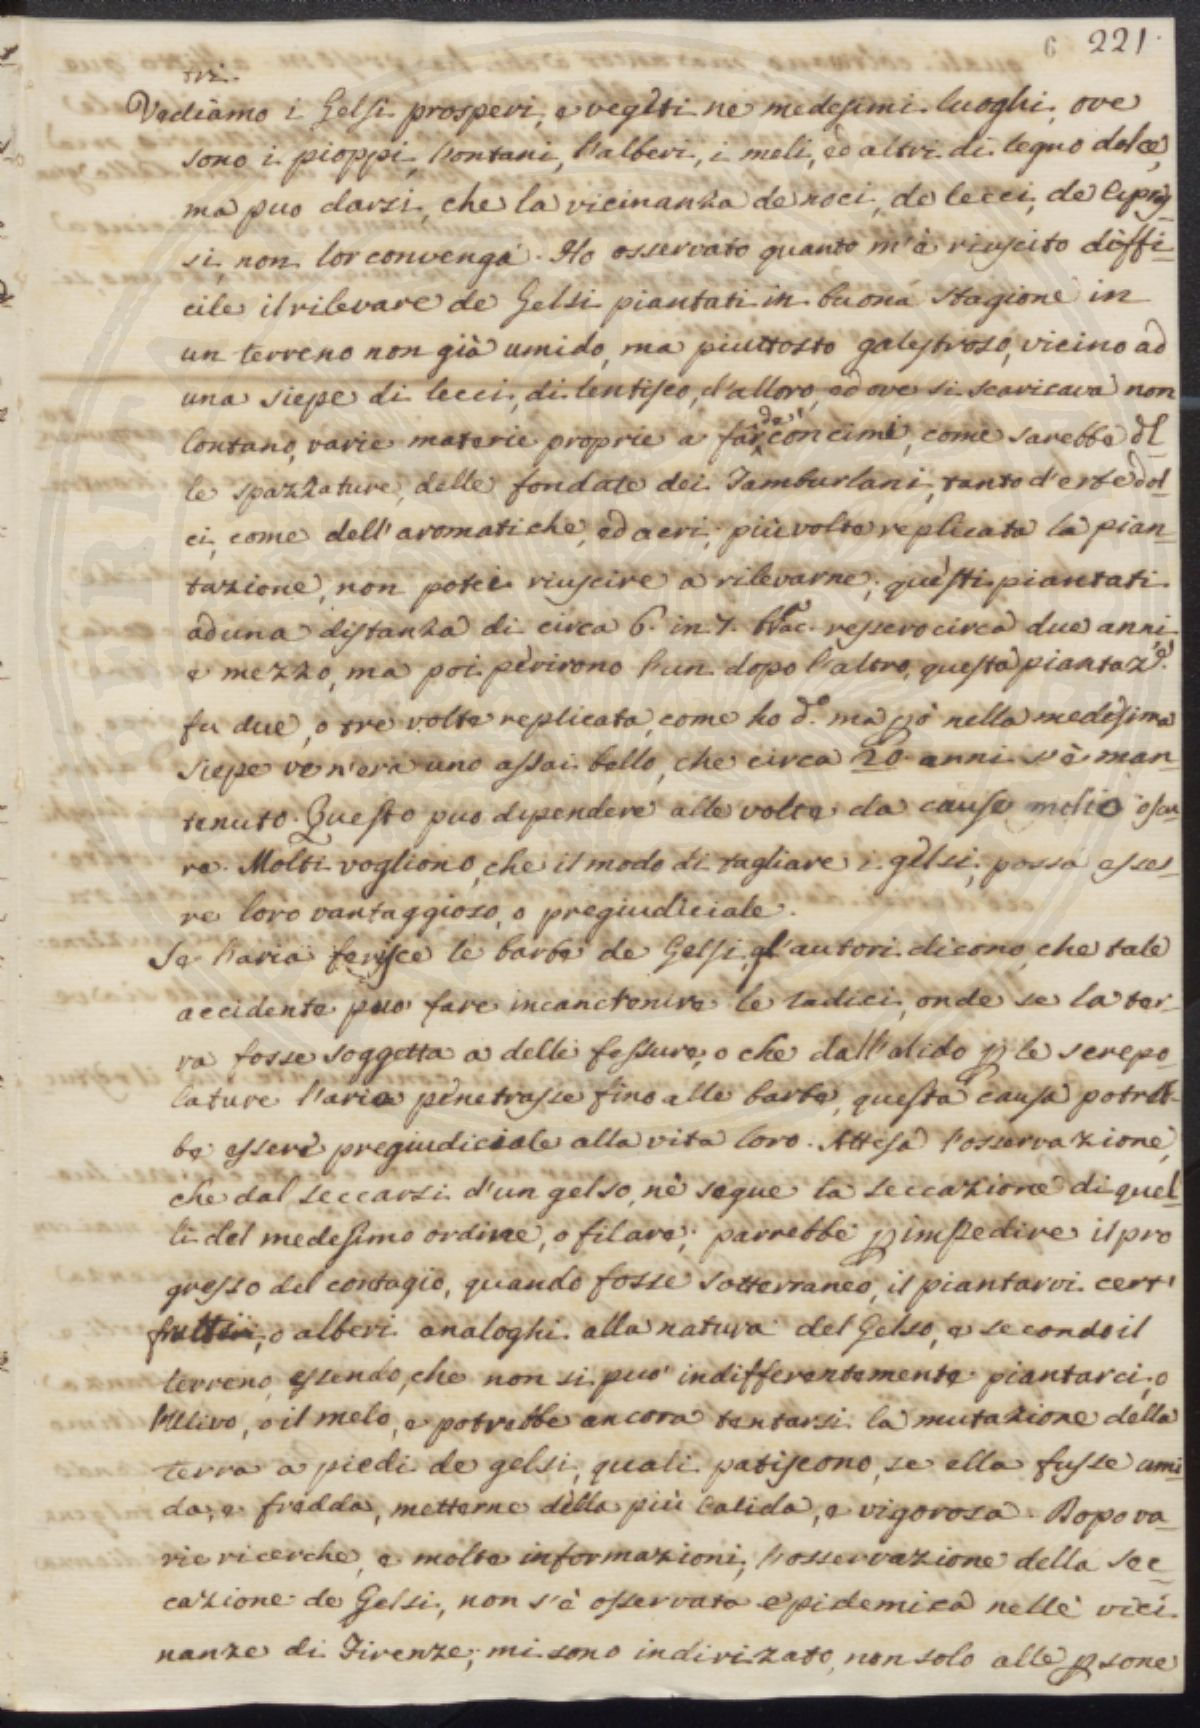 6 221.
tri.
Vediamo i Gelsi prosperi, e vegeti ne medesimi luoghi, ove
sono i pioppi, l'ontani, l'alberi, i meli, ed altri di legno dolce,
ma puo darsi, che la vicinanza de noci, de lecci, de cipres-
si, non lor convenga. Ho osservato quanto m'è riuscito diffi-
cile il rilevare de Gelsi piantati in buona stagione in
un terreno non già umido, ma piuttosto galestroso, vicino ad
una siepe di lecci, di lentisco, d'alloro, ed ove si scaricava non
lontano, varie materie proprie a far da concimi, come sarebbe del
le spazzature, delle fondate dei Tamburlani, tanto d'erbe dol-
ci, come dell'aromatiche, ed acri; più volte replicata la pian-
tazione, non potei riuscire a rilevarne; questi piantati
ad una distanza di circa 6. in 7. brac. ressero circa due anni,
e mezzo, ma poi perirono l'un dopo l'altro, questa piantaz.e
fu due, o tre volte replicata, come ho d.o ma però nella medesima
siepe ve n'era uno assai bello, che circa 20 anni s'è man-
tenuto. Questo puo dipendere alle volte da cause molto oscu-
re. Molti vogliono, che il modo di tagliare i gelsi, possa esse-
re loro vantaggioso, o pregiudiciale.
Se l'aria ferisce le barbe de Gelsi, gl'autori dicono, che tale
accidente puo fare incancrenire le radici, onde se la ter-
ra fosse soggetta a delle fessure, o che dall'alido p le screpo-
lature l'aria penetrasse fino alle barbe, questa causa potreb-
be essere pregiudiciale alla vita loro. Attesa l'osservazione,
che dal seccarsi d'un gelso, nè segue la seccazione di quel-
li del medesimo ordine, o filare; parrebbe p impedire il pro
gresso del contagio, quando fosse sotterraneo, il piantarvi certi
frutti, o alberi analoghi alla natura del Gelso, e secondo il
terreno, essendo, che non si puo' indifferentemente piantarci, o
l'Ulivo, o il melo, e potrebbe ancora tentarsi la mutazione della
terra a piedi de gelsi, quali patiscono, se ella fusse umi-
da, e fredda, metterne della più calida, e vigorosa. Dopo va-
rie ricerche, e molte informazioni, l'osservazione della sec-
cazione de Gelsi, non s'è osservata epidemica nelle vici-
nanze di Firenze; mi sono indirizato, non solo alle psone